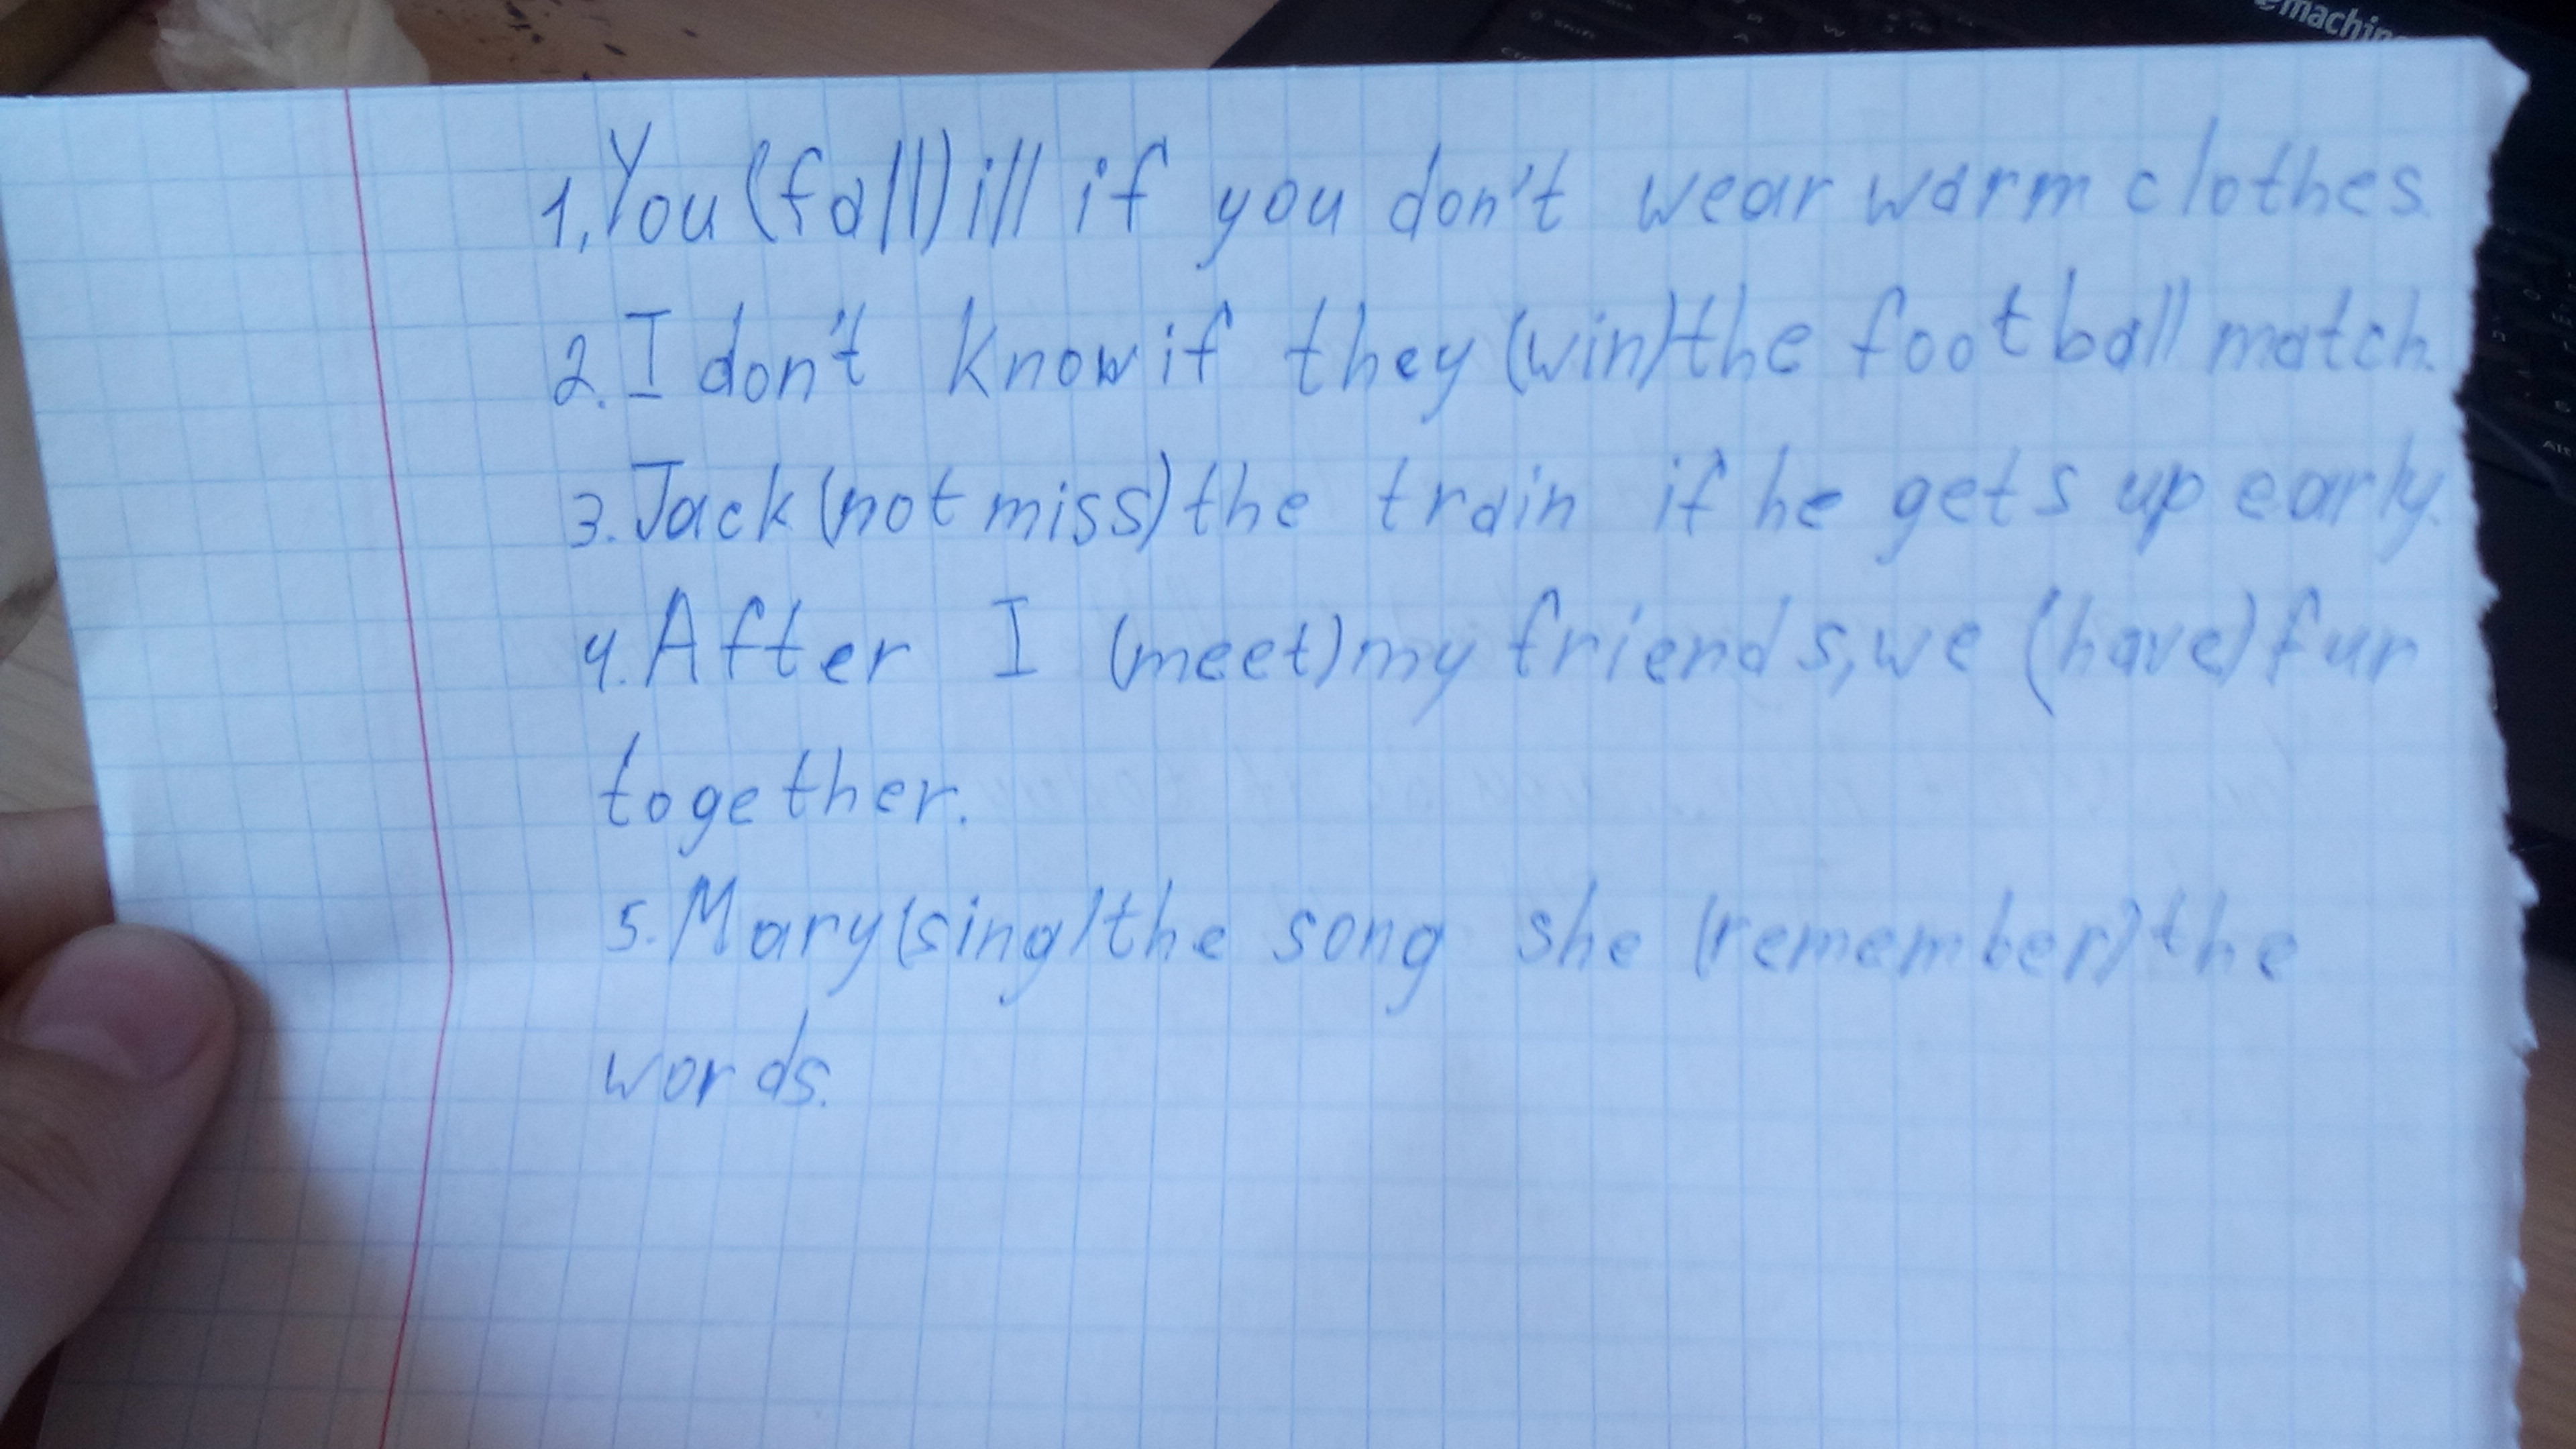 emachin
1. You (fall) ill if you don't wear warm clothes.
2. I don't know if they (win) the football match.
3. Jack (not miss) the train if he gets up early.
4. After I (meet) my friends, we (have) fun
together.
5. Mary (sing) the song she (remember) the
words.